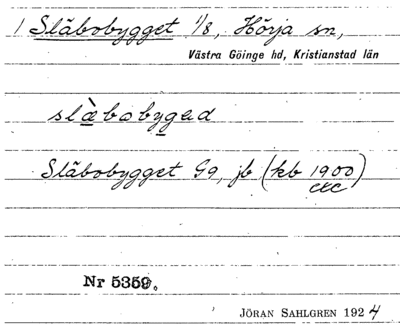 1 Släbobygget 1/8, Hörja sn,
Västra Göinge hd, Kristianstad län
slæ̀bobygəd
Släbobygget Gg, jb (kb 1900)
etc
Nr 5359.
JÖRAN SAHLGREN 1924